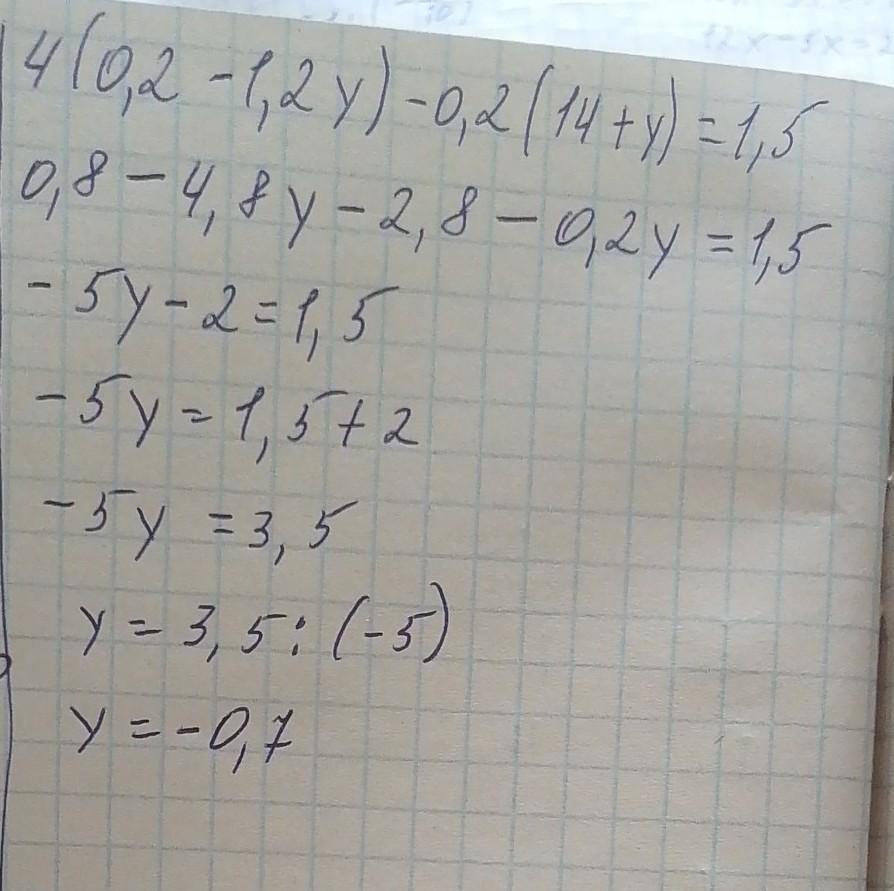 4(0,2-1,2y)-0,2(14+y)=1,5
0,8-4,8y-2,8-0,2y=1,5
-5y-2=1,5
-5y=1,5+2
-5y=3,5
y=3,5:(-5)
y=-0,7